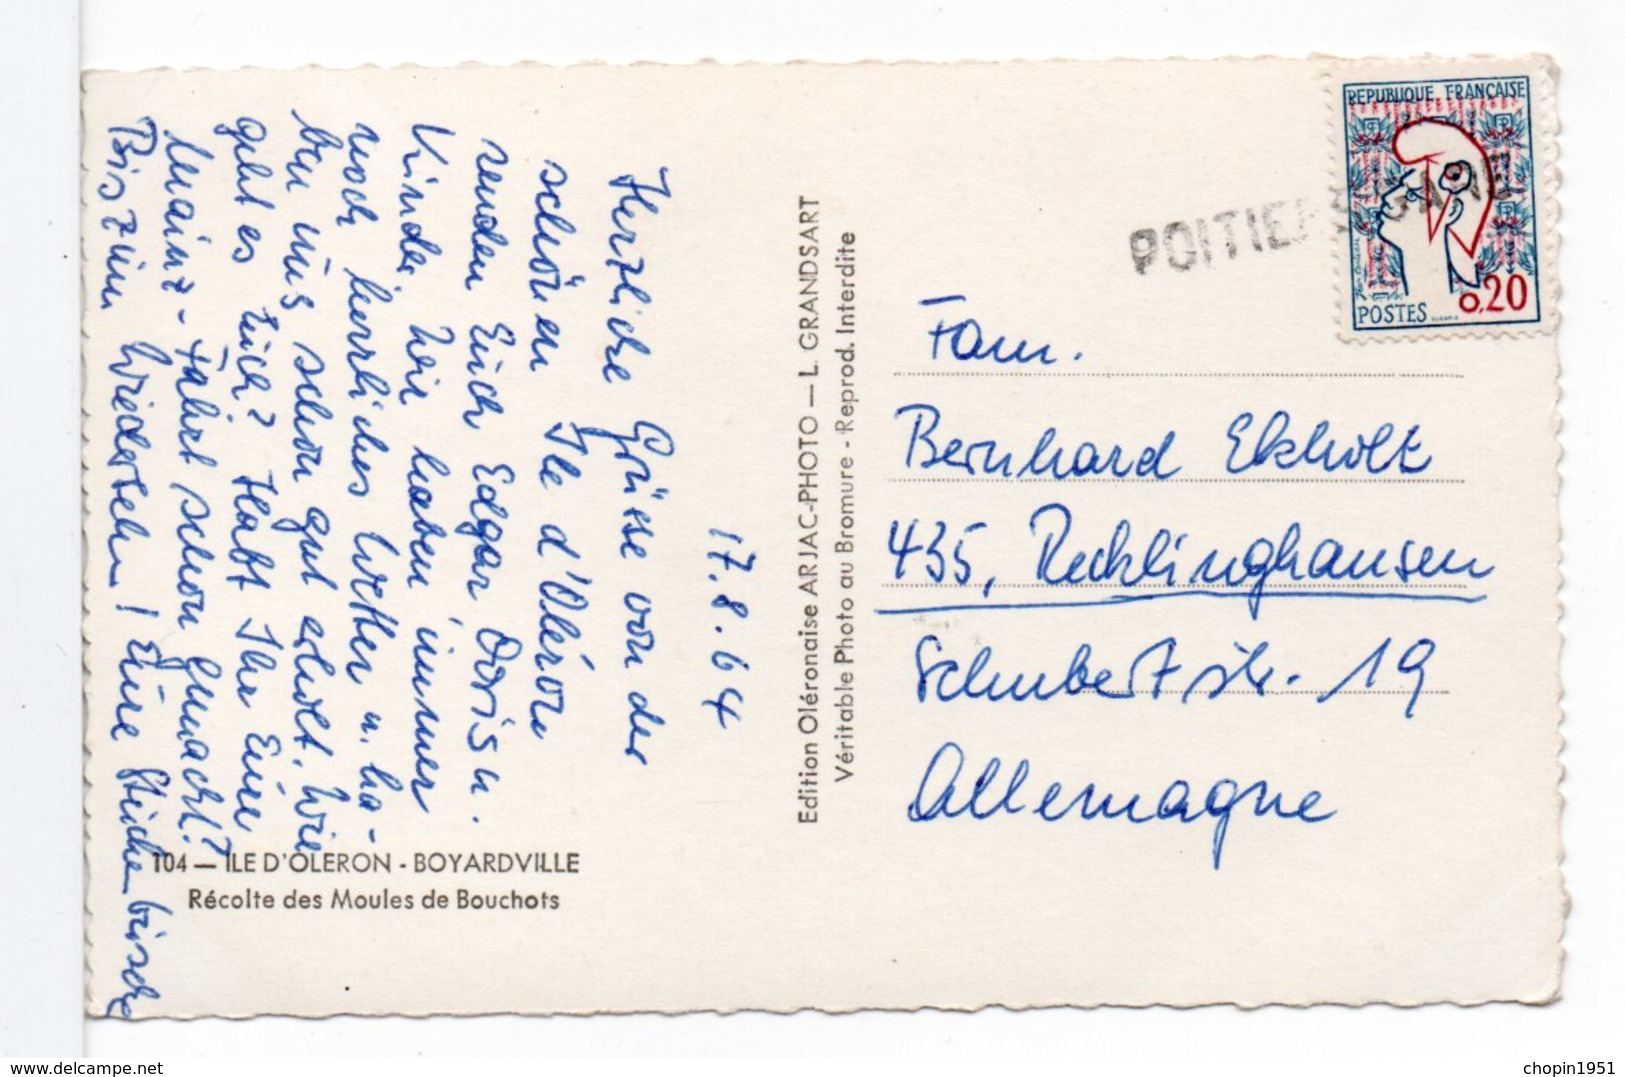 17.8.64
Herzliche Grüsse von der
schönen Ile d'Oléron
senden Euch Edgar Doris u.
Kinder. Wir haben immer
noch herrliches Wetter u. ha-
ben uns schon gut erholt. Wie
geht es Euch? Habt Ihr Eure
Mainz-Fahrt schon gemacht?
Bis zum Wiedersehn! Eure
104 — ILE D'OLERON - BOYARDVILLE
Récolte des Moules de Bouchots
Edition Oléronaise ARJAC-PHOTO — L. GRANDSART
Véritable Photo au Bromure - Reprod. Interdite
REPUBLIQUE FRANÇAISE
POSTES
0,20
POITIERS GARE
Fam.
Bernhard Ekholt
435, Recklinghausen
Schubertstr. 19
Allemagne
delcampe.net
chopin1951